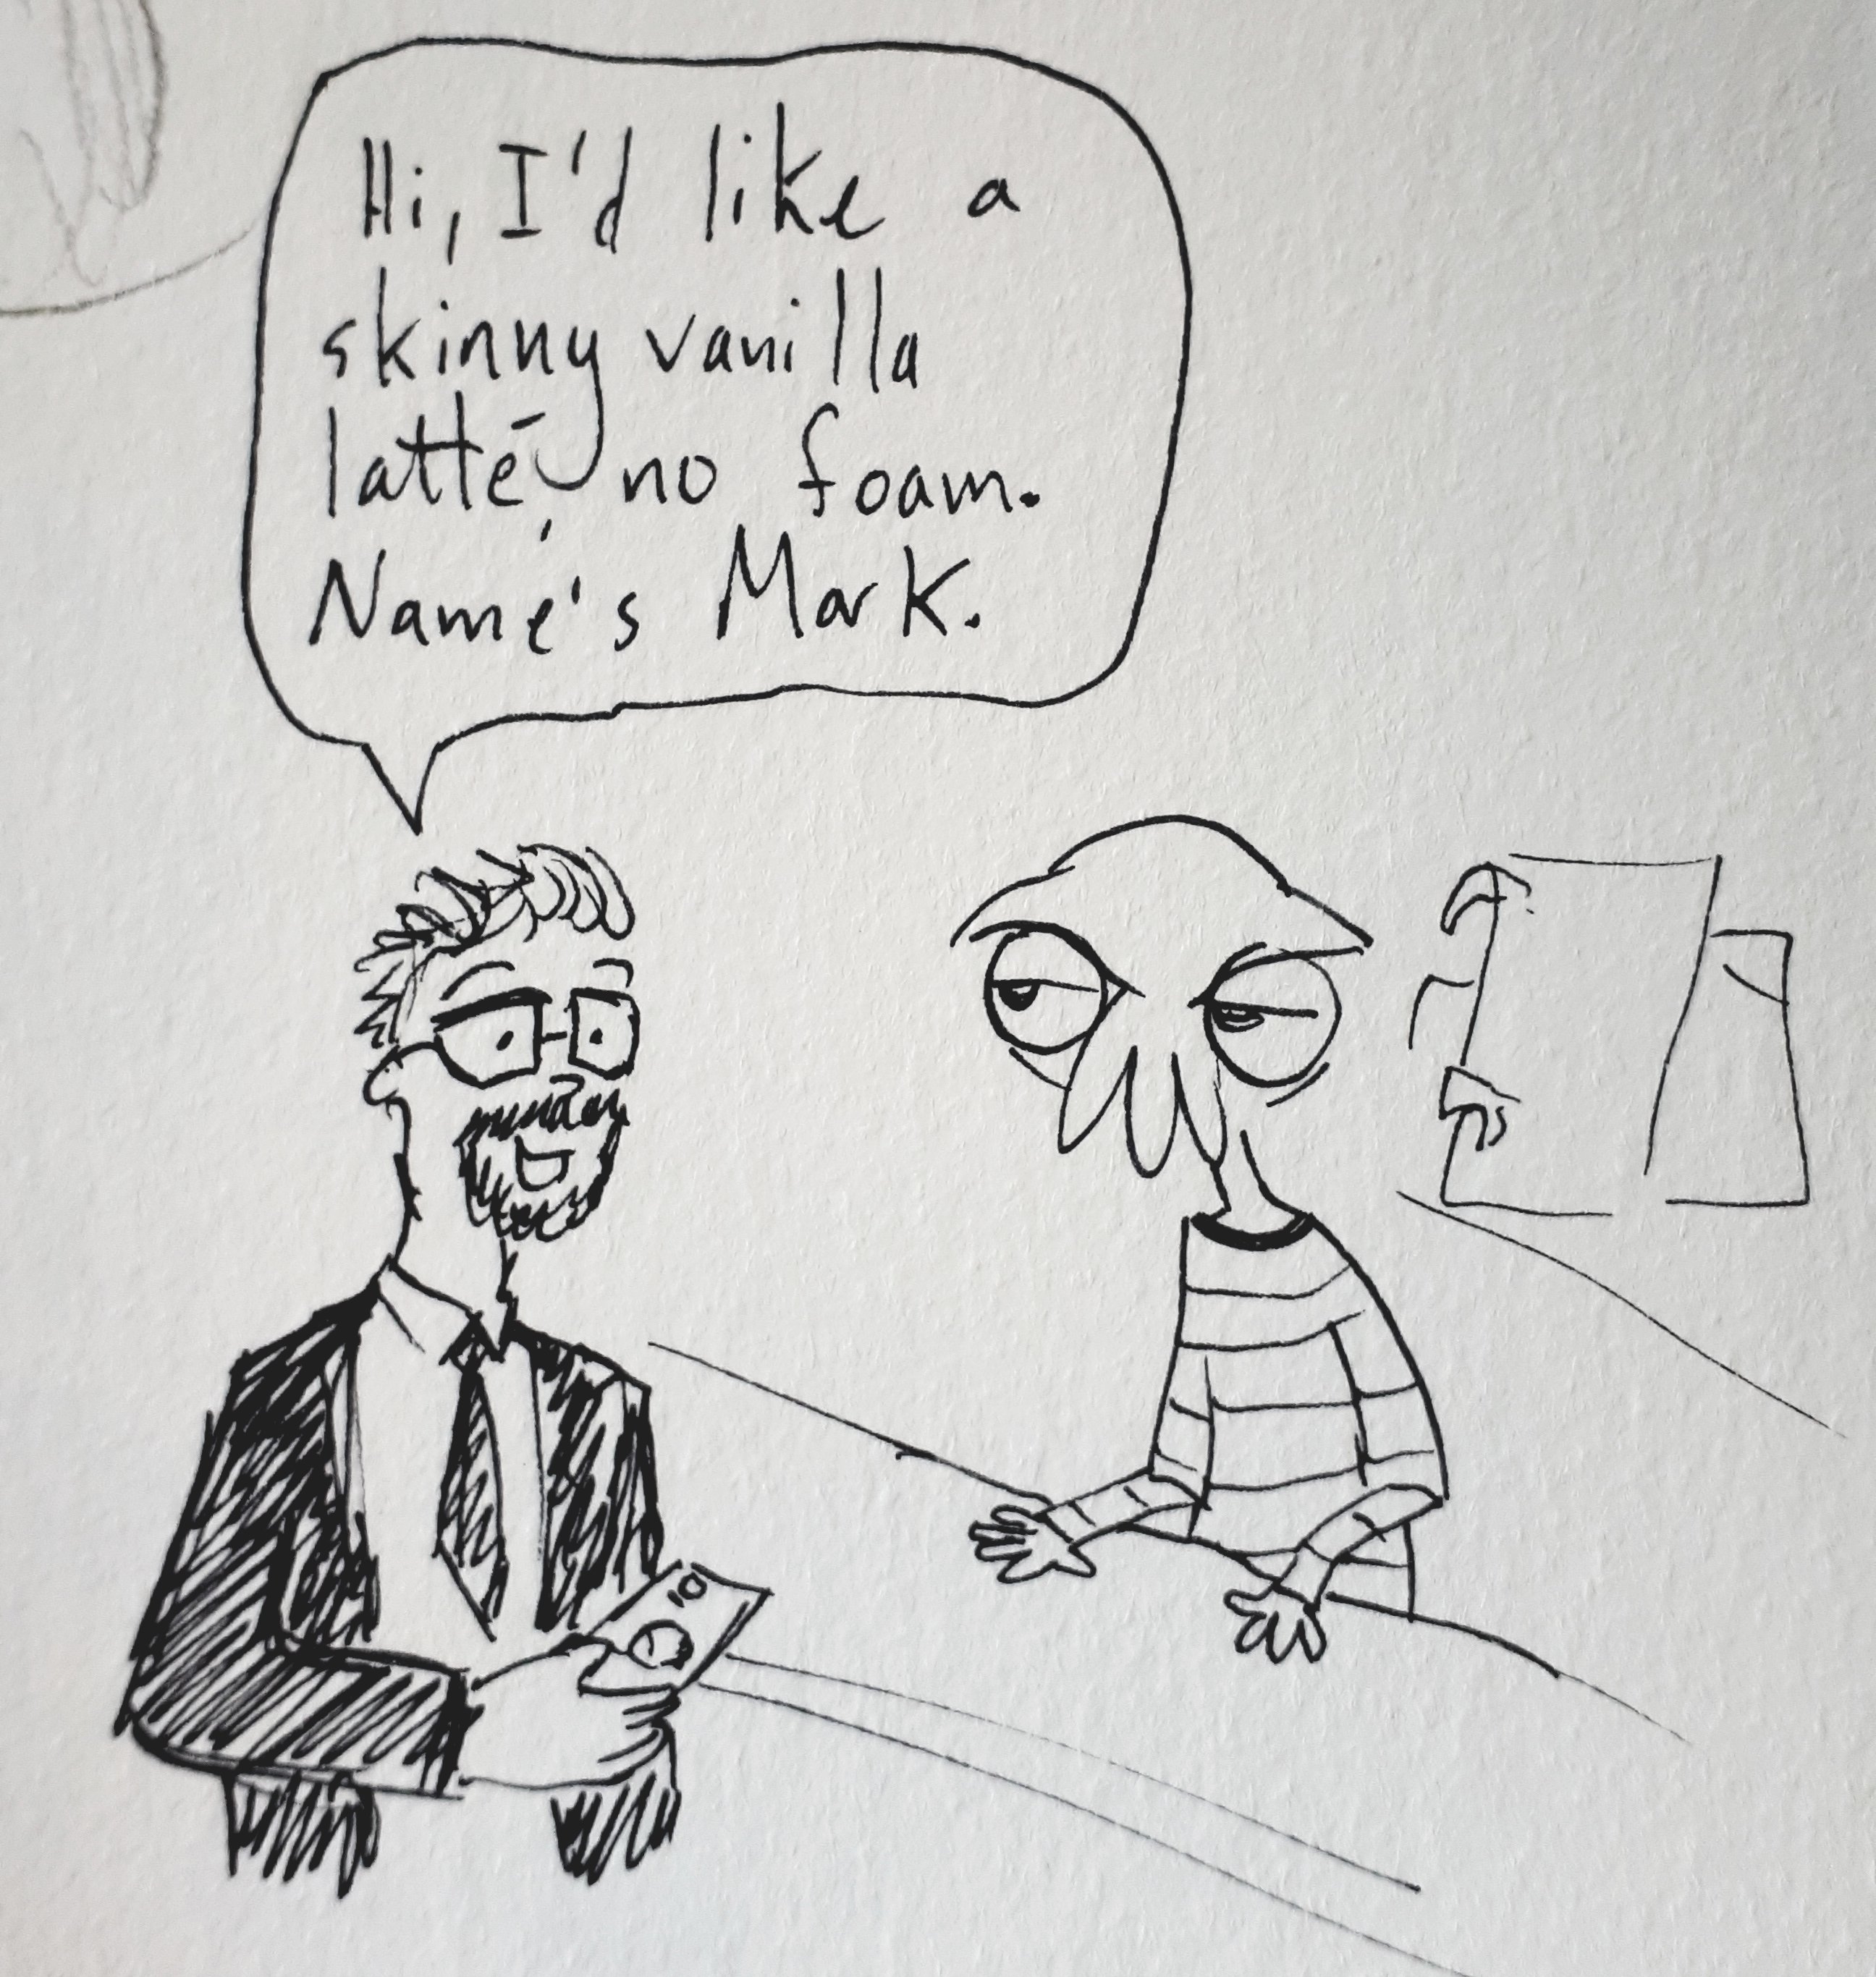 Hi, I'd like a
skinny vanilla
latté, no foam.
Name's Mark.
10